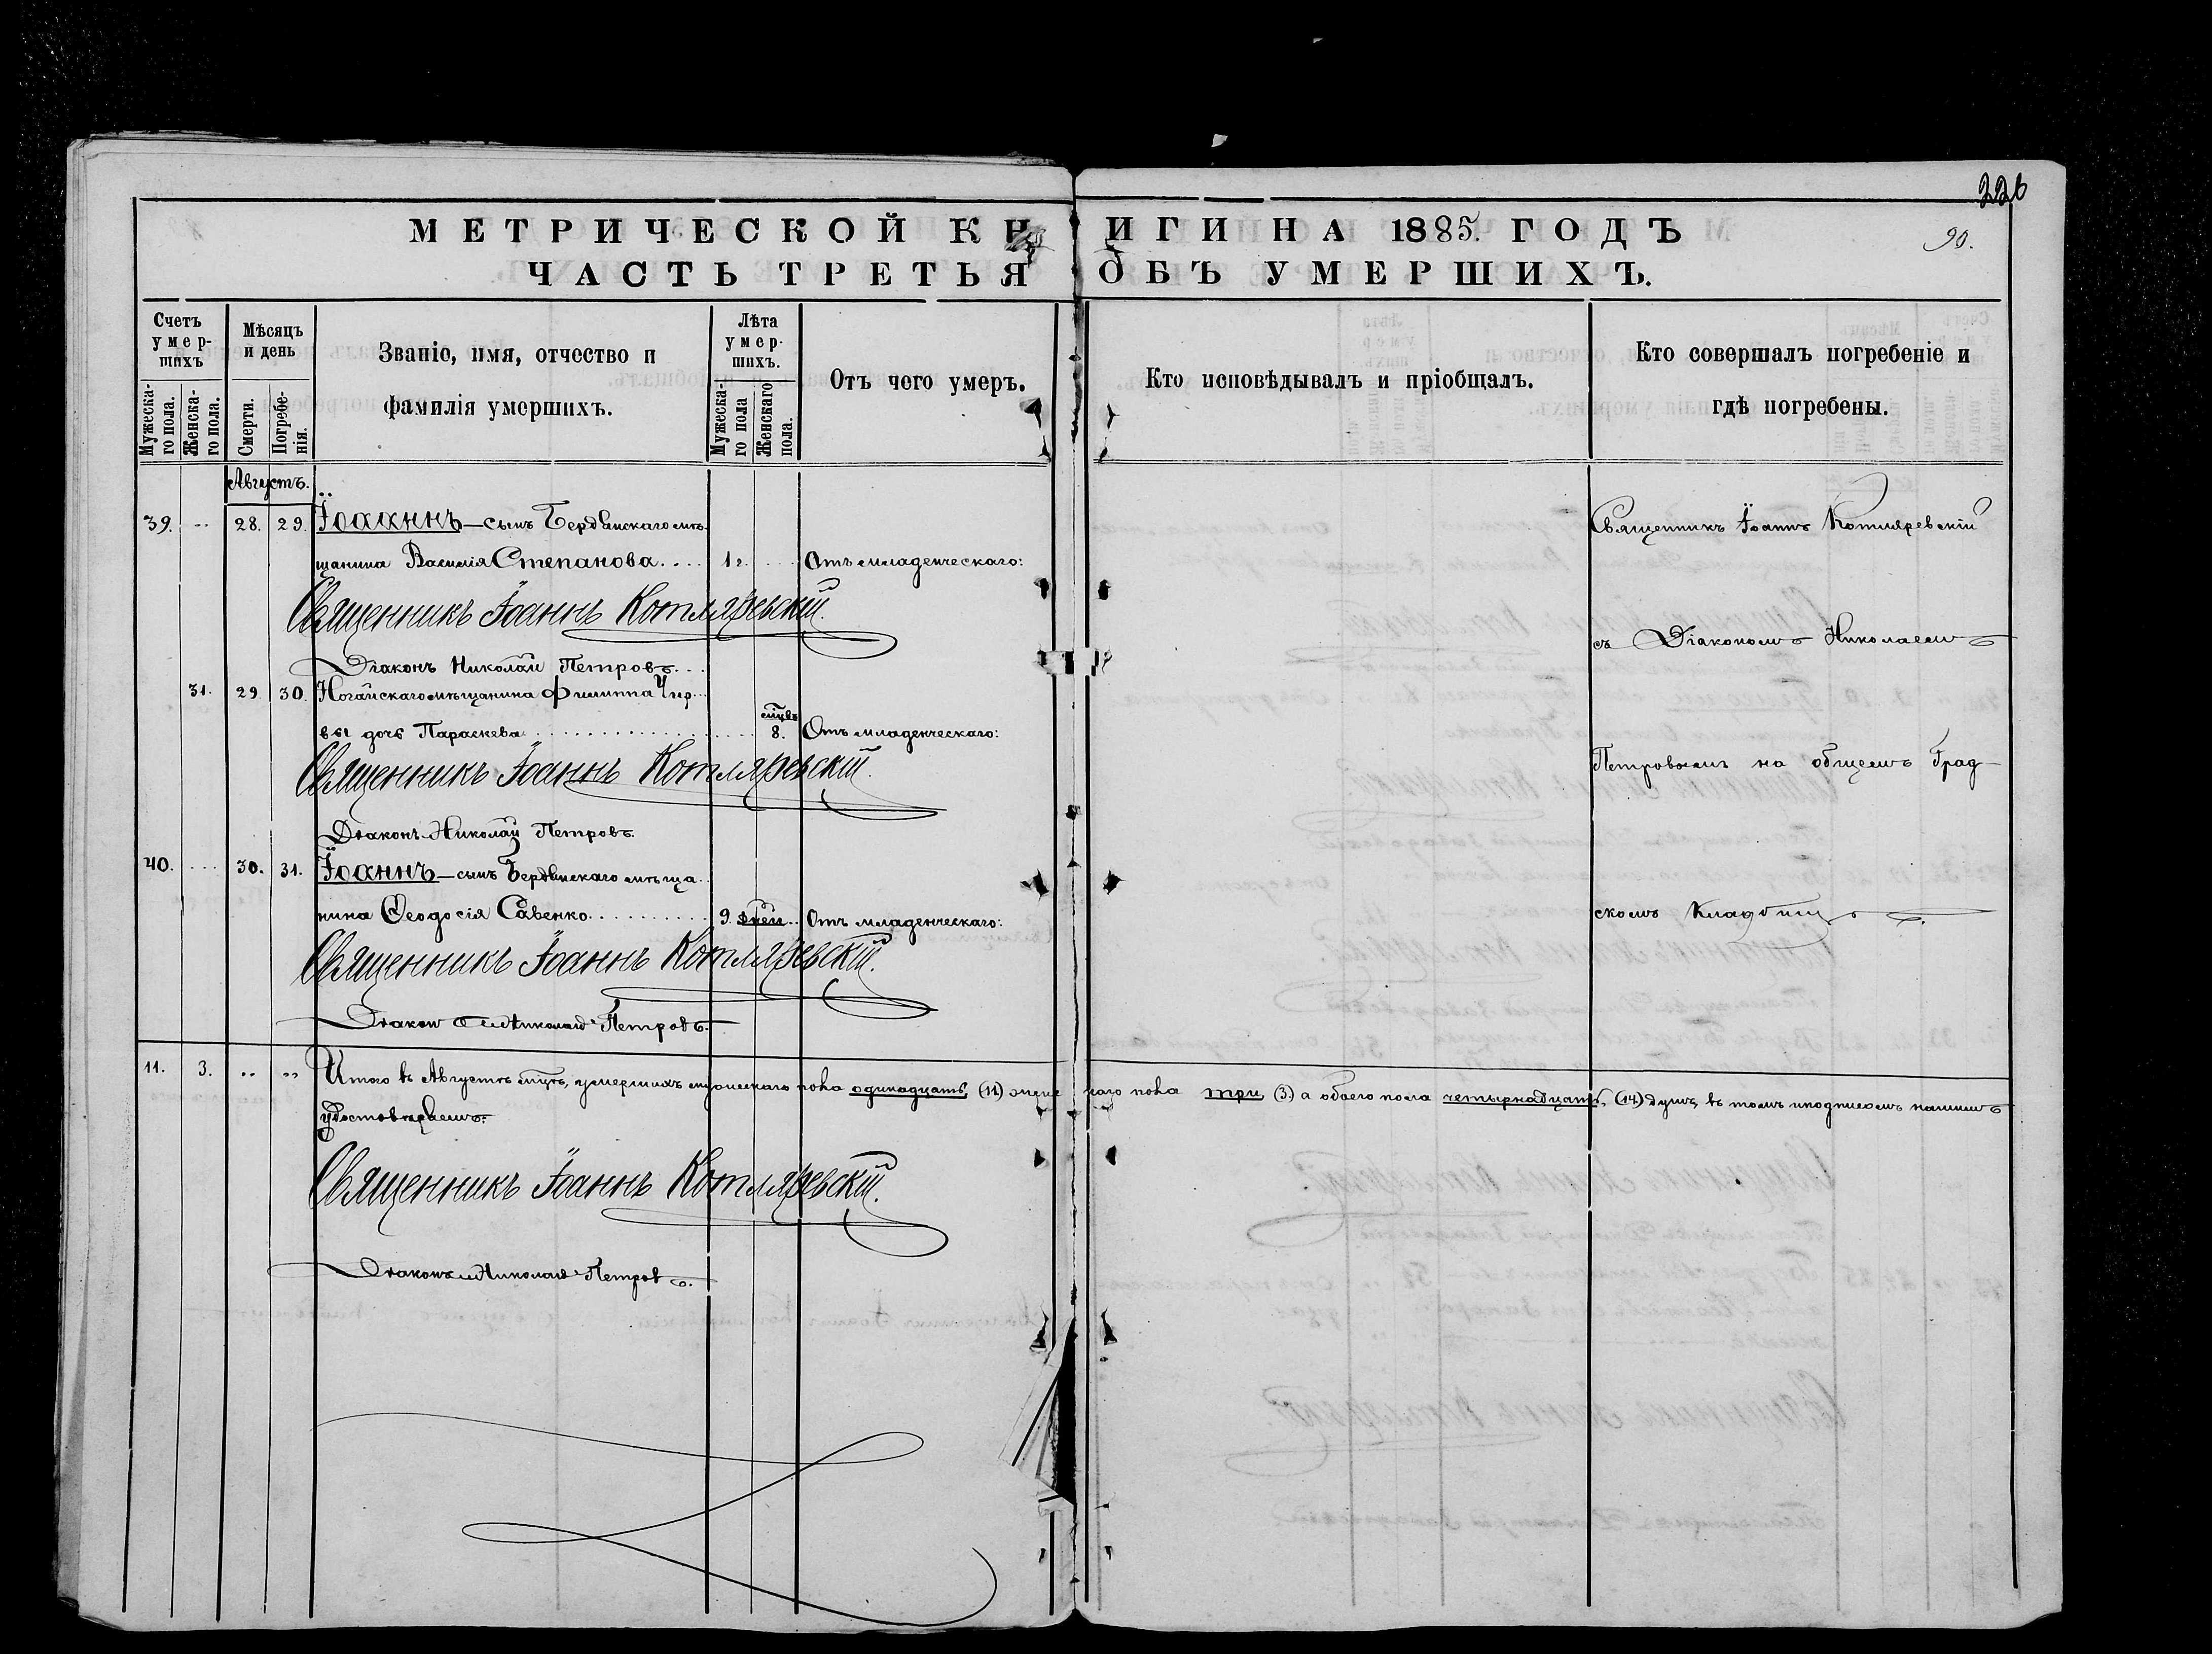 226
МЕТРИЧЕСКОЙ КНИГИ НА 1885. ГОДЪ
90.
ЧАСТЬ ТРЕТЬЯ ОБЪ УМЕРШИХЪ.
Счетъ умер-шихъ
Мужеска-го пола.
Женска-го пола.
Мѣсяцъ и день
Смерти.
Погребе-нія.
Званіе, имя, отчество и
фамилія умершихъ.
Лѣта умер-шихъ.
Мужеска-го пола
Женскаго пола.
Отъ чего умеръ.
Кто исповѣдывалъ и пріобщалъ.
Кто совершалъ погребеніе и
гдѣ погребены.
Августъ.
39. 28. 29. Іоаннъ – сынъ Бердянскаго мѣ-
щанина Василія Степанова.... 1 г. Отъ младенческаго:
Священникъ Іоаннъ Котляревскій.
Діаконъ Николай Петровъ.
31. 29. 30. Ногайскаго мѣщанина Филиппа Чир-
вы дочь Параскева мцвъ 8. Отъ младенческаго:
Священникъ Іоаннъ Котляревскій.
Діаконъ Николай Петровъ.
40. 30. 31. Іоаннъ – сынъ Бердянскаго мѣща-
нина Ѳеодосія Савенко 9. дней. Отъ младенческаго:
Священникъ Іоаннъ Котляревскій.
Діаконъ Николай Петровъ.
Священникъ Іоаннъ Котляревскій
съ Діакономъ Николаемъ
Петровымъ на общемъ Град-
скомъ Кладбищѣ.
11. 3. Итого въ Августѣ мцѣ, умершихъ мужескаго пола одинадцать, (11) женскаго пола три (3) а обоего пола четырнадцать, (14) душъ, въ томъ и подписомъ нашимъ
удостовѣряемъ:
Священникъ Іоаннъ Котляревскій.
Діаконъ Николай Петровъ.